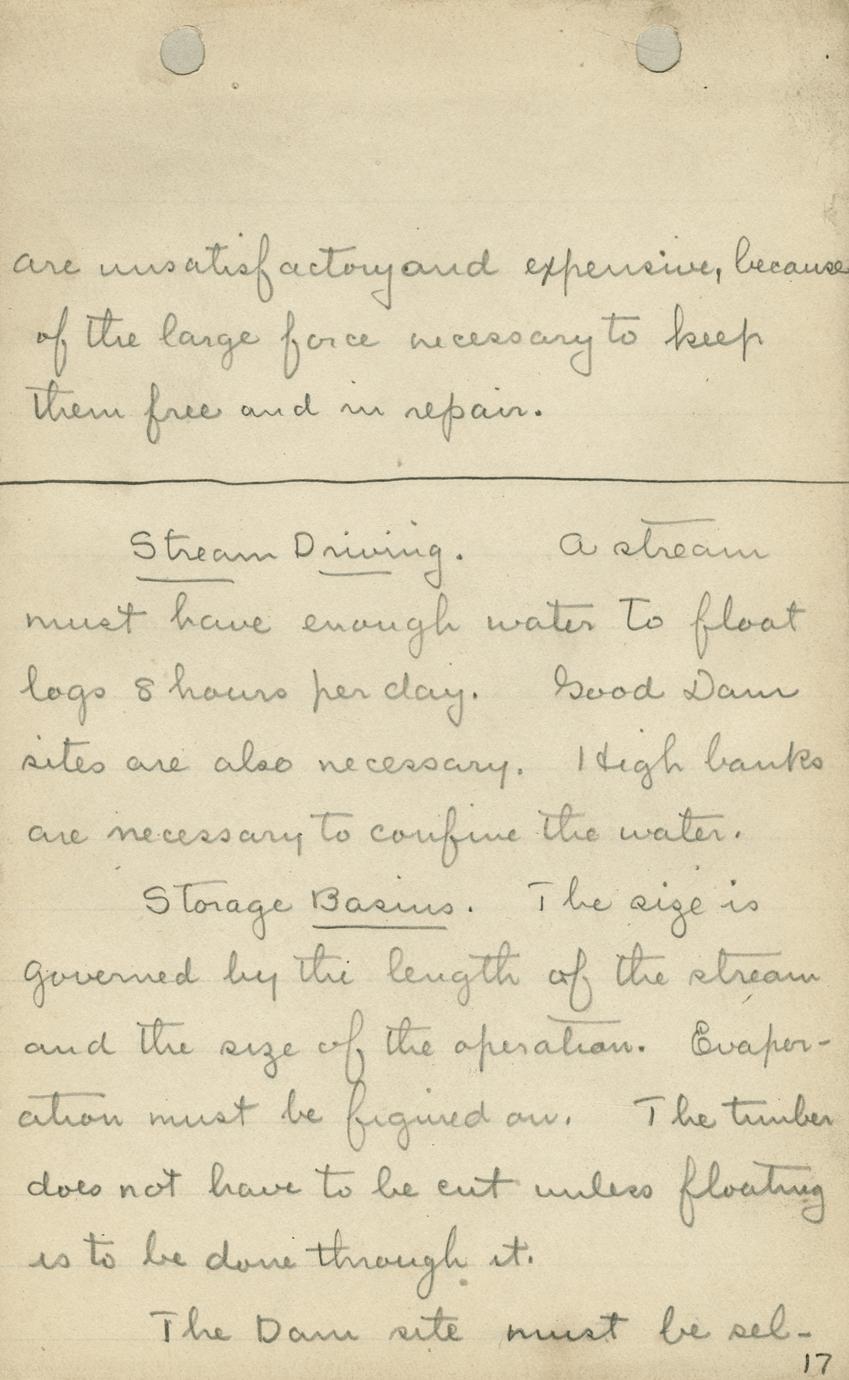 are unsatisfactory and expensive, because
of the large force necessary to keep
them free and in repair.
Stream Driving. A stream
must have enough water to float
logs 8 hours per day. Good Dam
sites are also necessary. High banks
are necessary to confine the water.
Storage Basins. The size is
governed by the length of the stream
and the size of the operation. Evapor-
ation must be figured on. The timber
does not have to be cut unless floating
is to be done through it.
The Dam site must be sel-
17